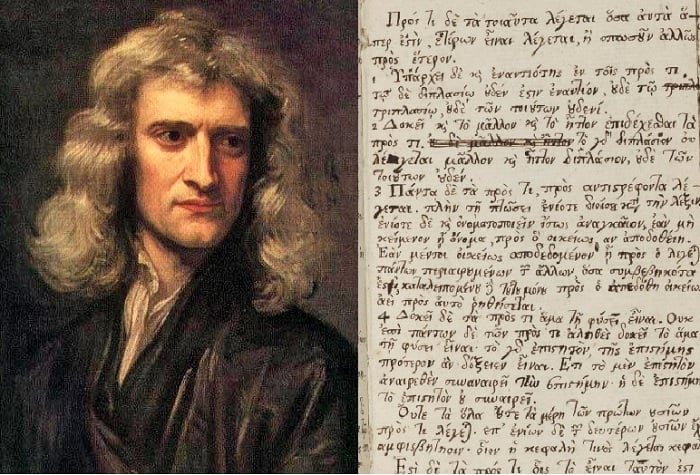 Πρός τι δὲ τὰ τοιαῦτα λέγεται ὅσα αὐτὰ ἅ-
περ ἐστὶν, ἑτέρων εἶναι λέγεται, ἢ ὁπωσοῦν ἄλλως
πρὸς ἕτερον.
1 Ὑπάρχει δὲ ϗ ἐναντιότης ἐν τοῖς πρός τι
τῷ δὲ διπλασίῳ ȣδέν ἐστιν ἐναντίον, ȣδὲ τῷ
τριπλασίῳ, ȣδὲ τῶν τοιȣτων ȣδενί.
2 Δοκεῖ ϗ τὸ μᾶλλον ϗ τὸ ἧττον ἐπιδέχεσθαι τὰ
πρός τι. τὸ γὸ διπλάσιον ȣ
λέγεται μᾶλλον ϗ ἧττον διπλάσιον, ȣδὲ τῶν
τοιȣτων ȣδέν.
3 Πάντα δὲ τὰ πρός τι, πρὸς ἀντιστρέφοντα λέ
γεται. πλὴν τῇ πτώσει ἐνίοτε διοίσει τὴν λέξιν
ἐνίοτε δὲ ϗ ὀνοματοποιεῖν ἴσως ἀναγκαῖον, ἐὰν μὴ
κείμενον ᾖ ὄνομα, πρὸς ὃ οἰκείως ἂν ἀποδοθείη.
Ἐὰν μέντοι οἰκείως ἀποδεδομένον ᾖ πρὸς ὃ λέγε
πάντων περιαιρȣμένων τ ἄλλων ὅσα συμβεβηκότα
ἐστι, καταλειπομένȣ μόνȣ πρὸς ὃ ἀπεδόθη οἰκείω
ἀεὶ πρὸς αὐτὸ ῥηθήσεται.
4 Δοκεῖ δὲ τὰ πρός τι ἅμα τῇ φύσει εἶναι. Οὐκ
ἐπὶ πάντων δὲ τῶν πρός τι ἀληθὲς δοκεῖ τὸ ἅμα
τῇ φύσει εἶναι. τὸ γὸ ἐπιστητὸν, τῆς ἐπιστήμης
πρότερον ἂν δόξειεν εἶναι. Ἔτι τὸ μὲν ἐπιστητὸν
ἀναιρεθὲν συναναιρεῖ τὴν ἐπιστήμην. ἡ δὲ ἐπιστήμ
τὸ ἐπιστητὸν ȣ συναιρεῖ.
Οὔτε τὰ ὅλα ȣτε τὰ μέρη τῶν πρώτων ȣσιῶν
πρός τι λέγε. ἐπ' ἐνίων δὲ τ δευτέρων ȣσιῶν ἔχ
ἀμφισβήτησιν. οἷον ἡ κεφαλὴ τινὸς λέγεται κεφα
Ἔστι δὲ τὰ πρός τι οἷς τὸ εἶναι ταυτόν ἐστι